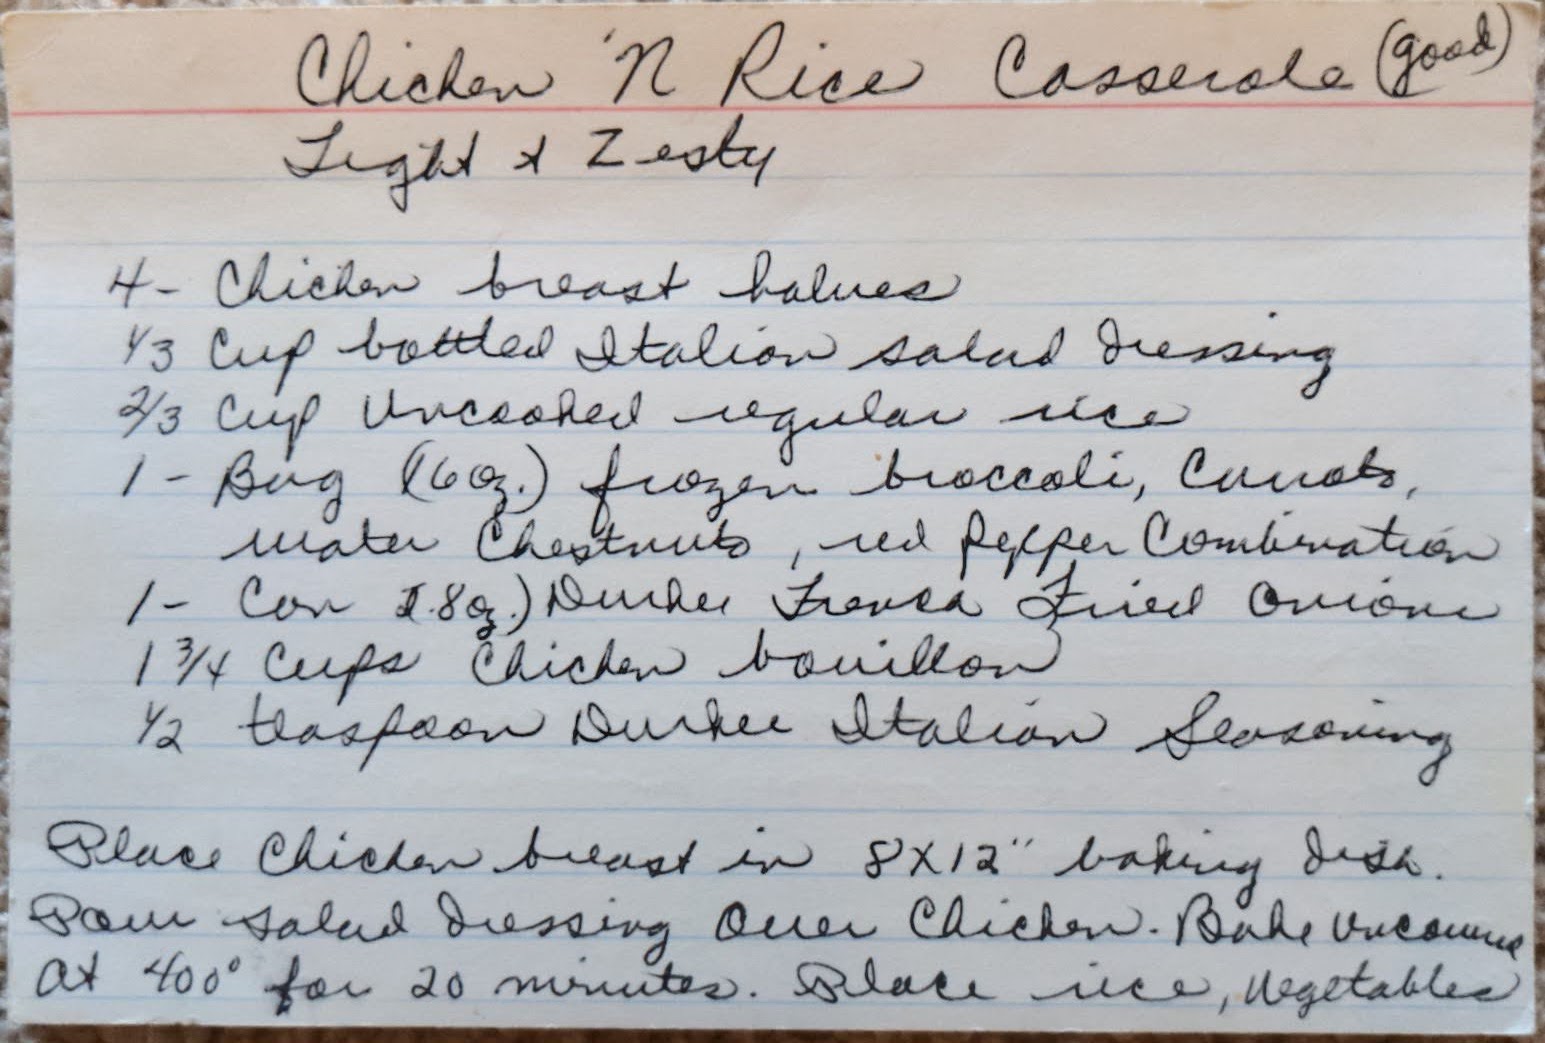 Chicken 'N Rice Casserole (good)
Light & Zesty
4- Chicken breast halves
1/3 Cup bottled Italian salad dressing
2/3 Cup Uncooked regular rice
1 - Bag (16 oz.) frozen broccoli, Carrots,
water Chestnuts, red pepper Combination
1- Can 2.8 oz.) Durkee French Fried Onions
1 3/4 Cups Chicken bouillon
1/2 teaspoon Durkee Italian Seasoning
Place Chicken breast in 8X12" baking dish.
Pour salad dressing over Chicken. Bake Uncovered
at 400° for 20 minutes. Place rice, vegetables